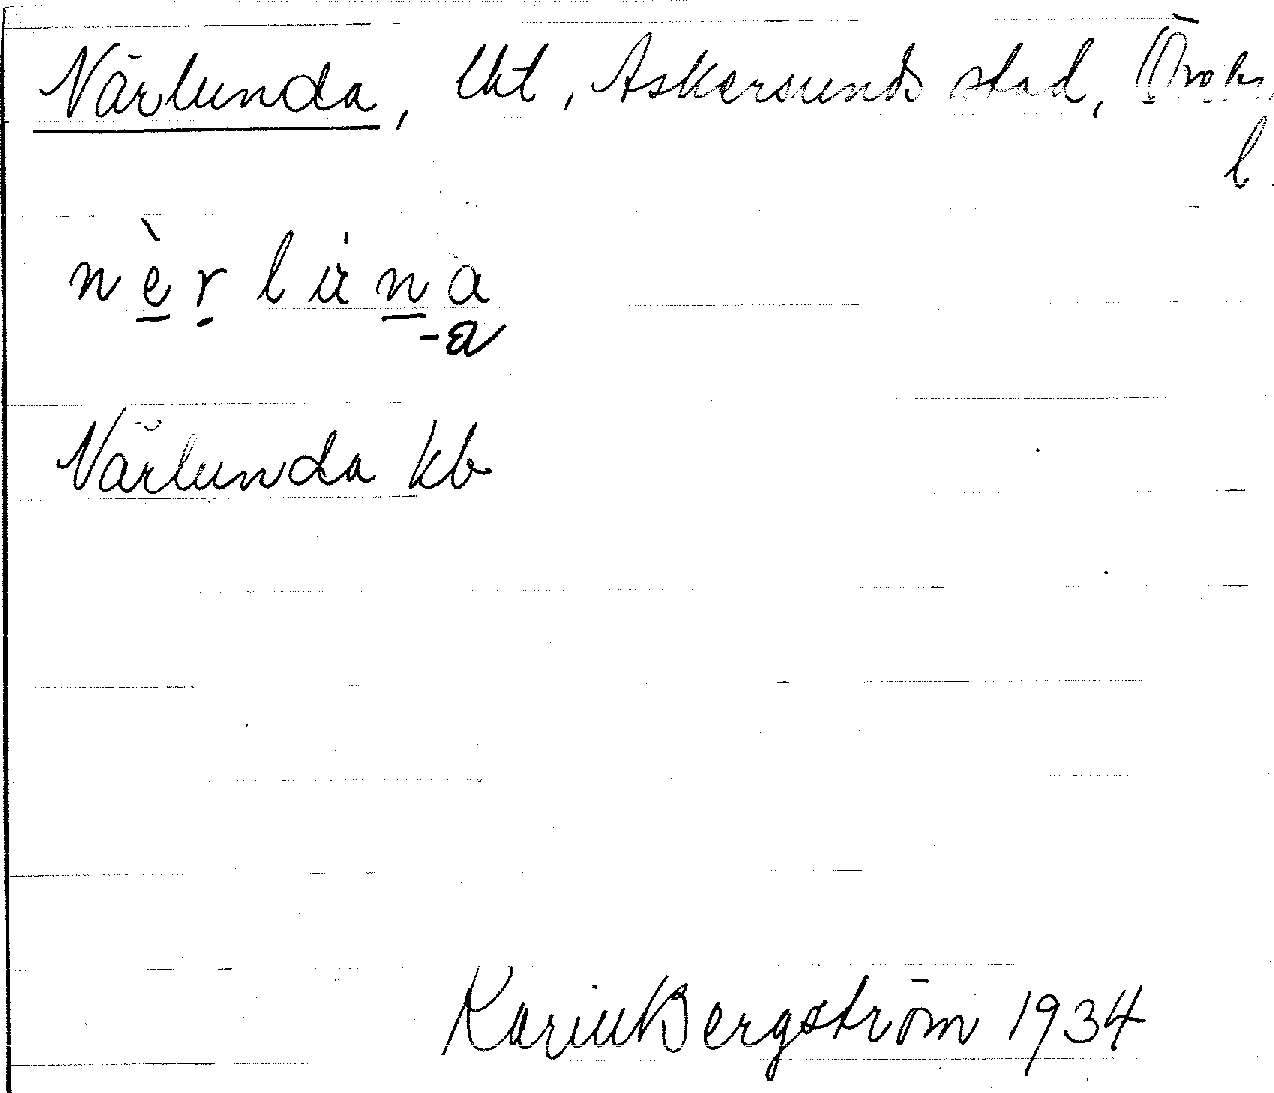 Närlunda, lht, Askersunds stad, Örebr
l.
nèrluna
-a
Närlunda kb
Karin Bergström 1934